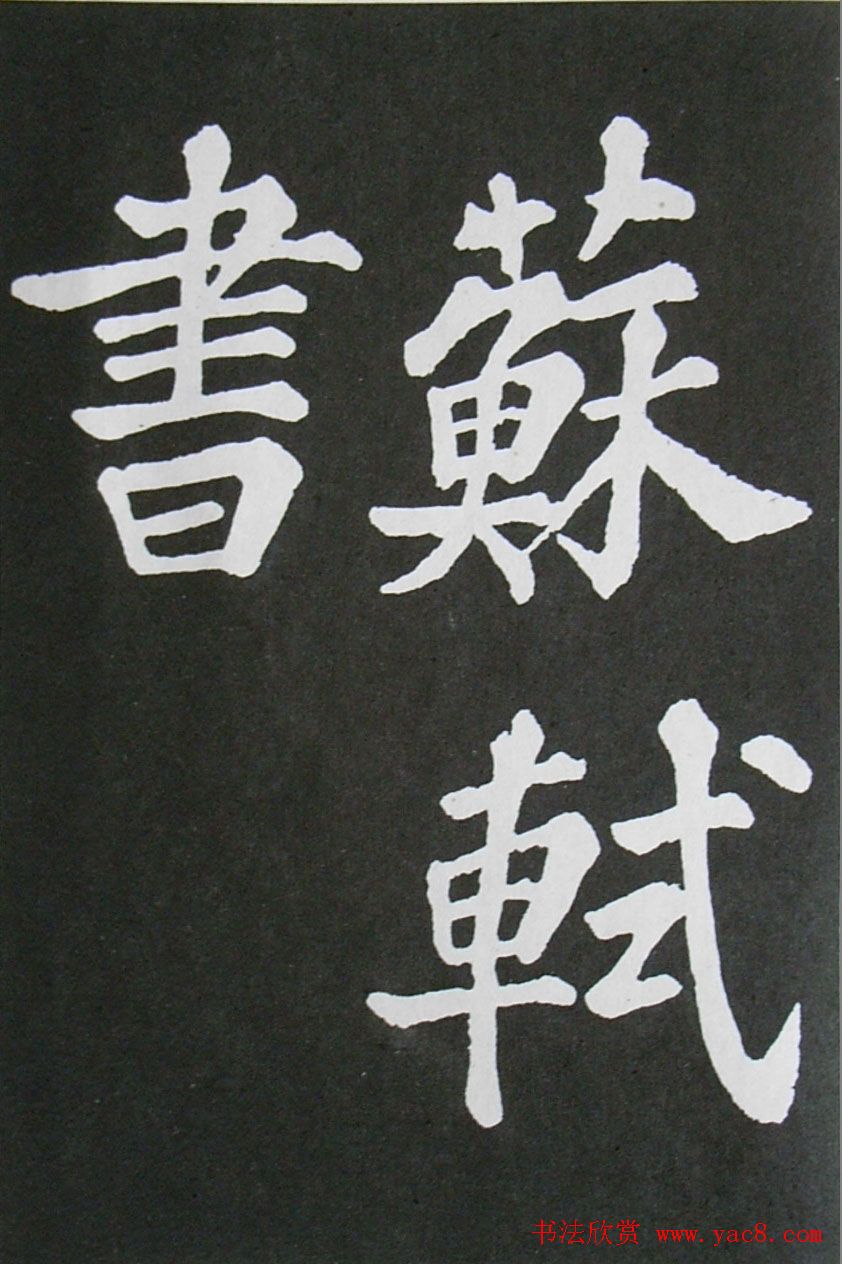 蘇軾
書
书法欣赏 www.yac8.com